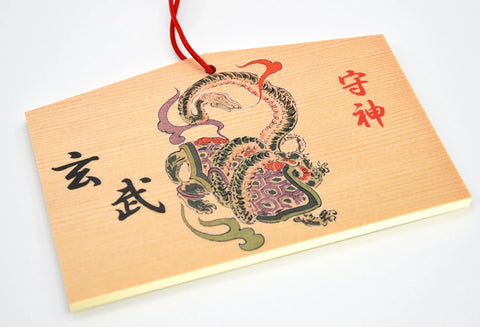 守神
玄武